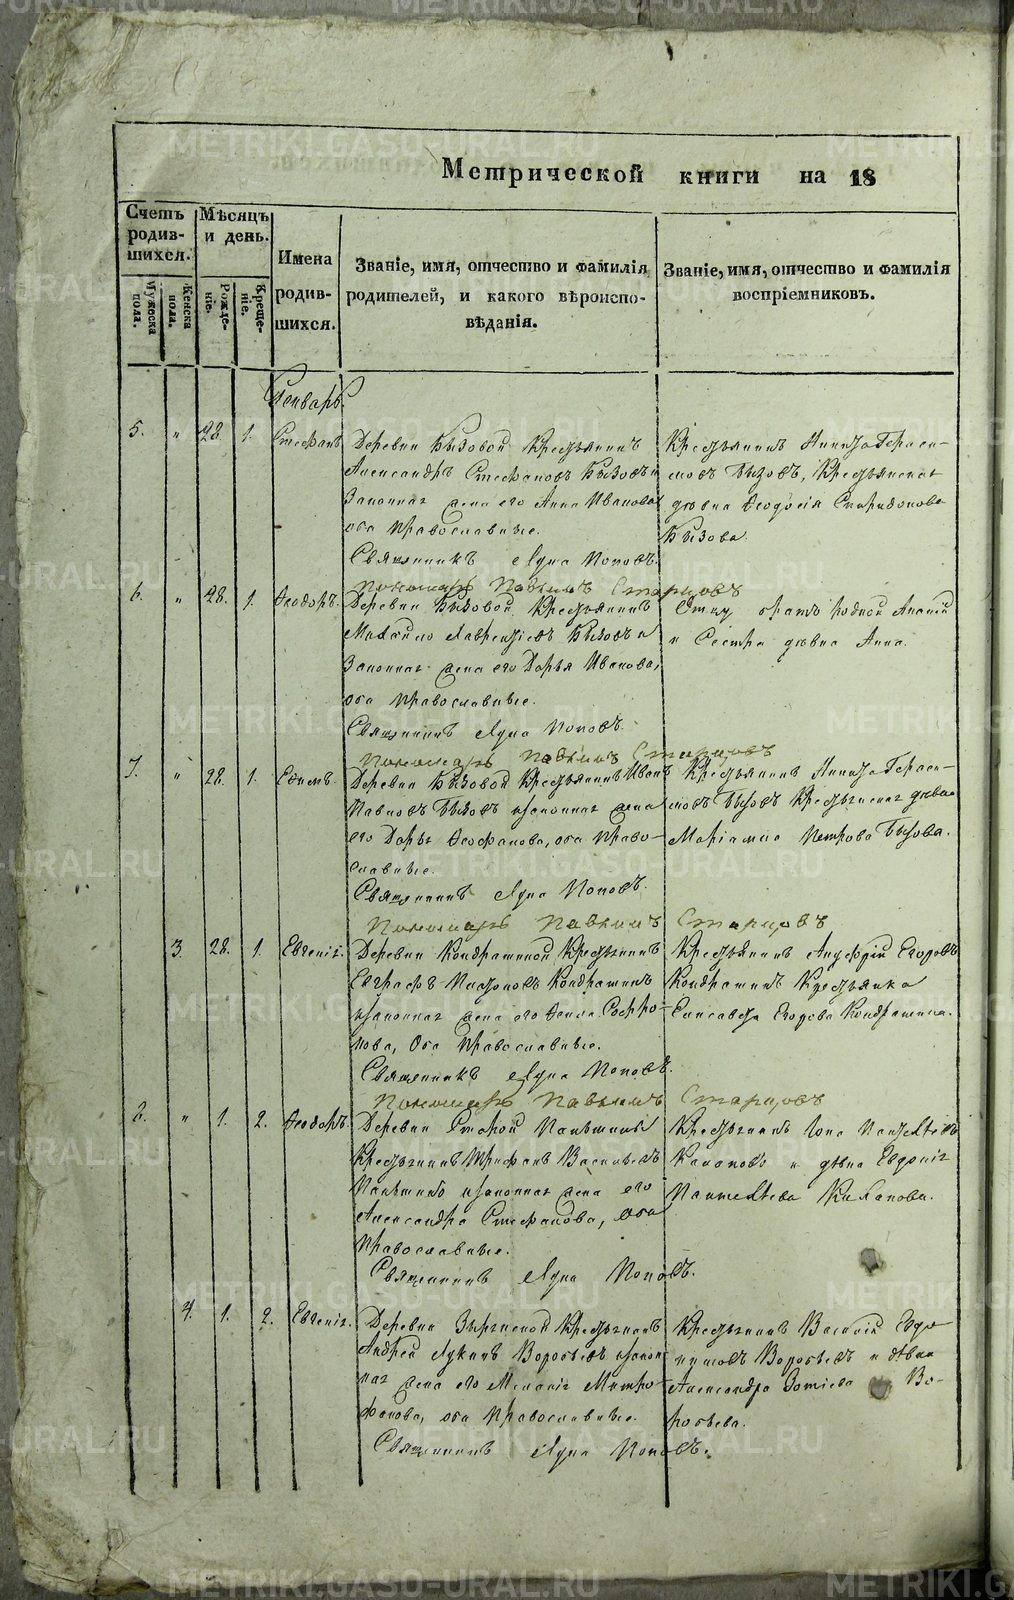 Метрической книги на 18
Счетъ родив-шихся.
Мѣсяцъ и день.
Имена родив-шихся.
Званіе, имя, отчество и фамилія
родителей, и какого вѣроиспо-
вѣданія.
Званіе, имя, отчество и фамилія
воспріемниковъ.
Мужеска пола.
Женска пола.
Рожде-ніе.
Креще-ніе.
Генварь.
5. " 28. 1. Стефанъ
Деревни Бызовой Крестьянинъ
Александръ Стефановъ Бызовъ и
Законная жена его Анна Иванова
оба православные.
Священникъ Поповъ.
Пономарь Старцовъ
Крестьянинъ Никита Гераси-
мовъ Бызовъ, Крестьянская
дѣвка Ѳеодосія Спиридонова
Бызова.
6. " 28. 1. Ѳеодоръ.
Деревни Бызовой Крестьянинъ
Михайло Лаврентіевъ Бызовъ и
Законная жена его Дарья Иванова,
оба православные.
Священникъ Поповъ.
Пономарь Старцовъ
Отцу братъ родной
и Сестра дѣвка Анна.
7. " 28. 1. Ефимъ.
Деревни Бызовой Крестьянинъ Иванъ
Павловъ Бызовъ и законная жена
его Дарья Ѳеофанова, оба право-
славные.
Священникъ Поповъ.
Пономарь Старцовъ
Крестьянинъ Никита Гераси-
мовъ Бызовъ Крестьянская дѣвка
Маріамна Петрова Бызова.
3. 28. 1. Евгенія.
Деревни Кондратиной Крестьянинъ
Евграфъ Кондратинъ
и законная жена его Софро-
нова, Оба Православные.
Священникъ Поповъ.
Пономарь Старцовъ
Крестьянинъ Егоровъ
Кондратинъ Крестьянка
Елисавета Егорова Кондратина.
8. " 1. 2. Ѳеодоръ.
Деревни Старой
Крестьянинъ Трифонъ Васильевъ
и законная жена его
Александра Стефанова, оба
православные.
Священникъ Поповъ.
Крестьянинъ Іона
и дѣвка Евдокія
Пантелѣева
4. 1. 2. Евгенія.
Деревни Крестьянинъ
Андрей Лукинъ Воробьевъ и закон-
ная жена его Меланія Митро-
фанова, оба православные.
Священникъ Поповъ.
Крестьянинъ Василій Евдо-
кимовъ Воробьевъ и дѣвка
Александра Во-
робьева.
METRIKI.GASO-URAL.RU